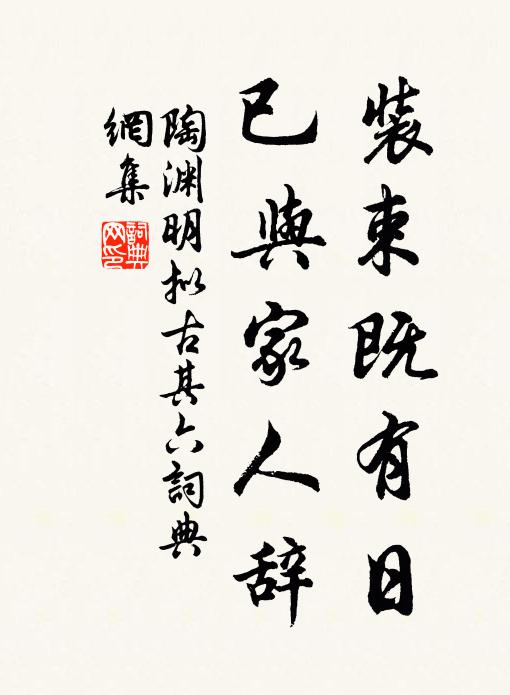 装束既有日
已與家人辞
陶渊明拟古其六詞典
網集
詞典
网印